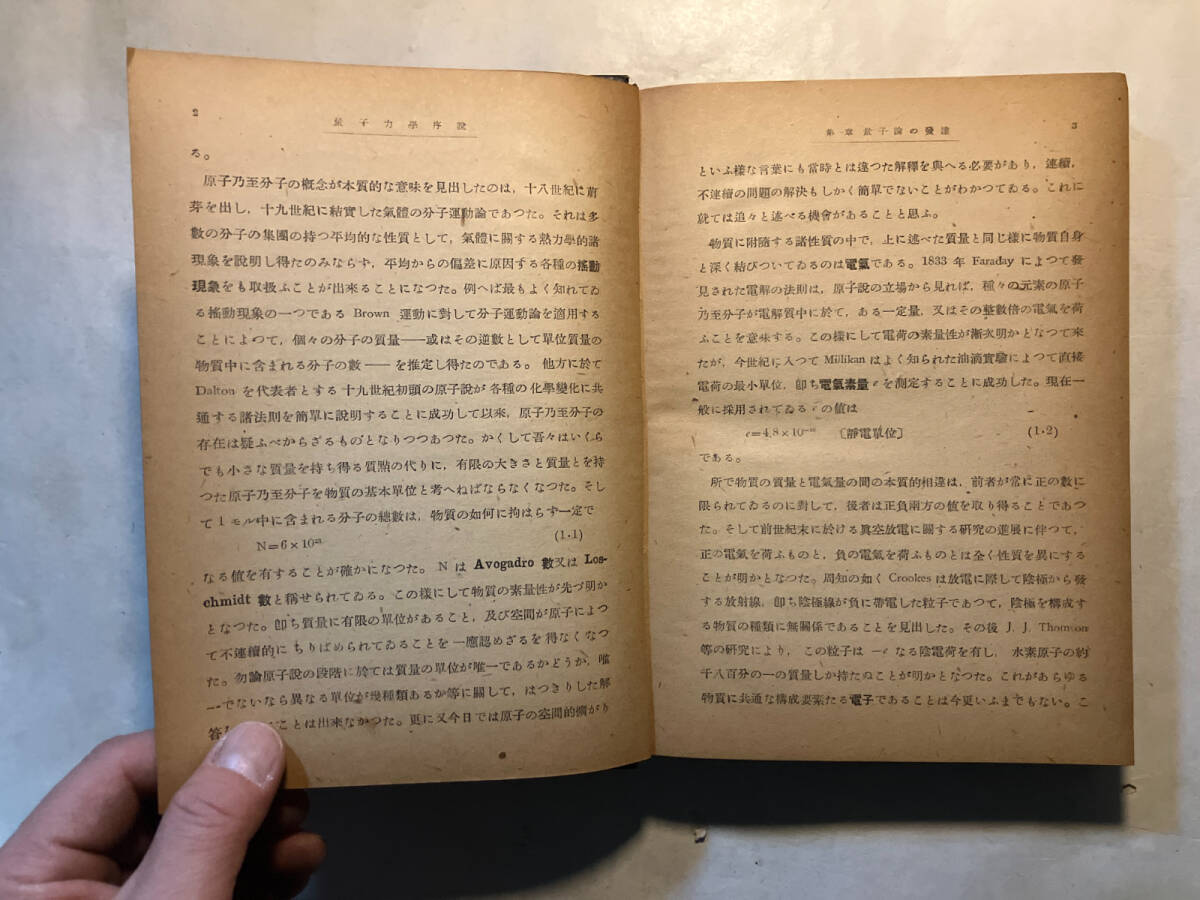 2
量子力學序說
る。
原子乃至分子の槪念が本質的な意味を見出したのは，十八世紀に萠
芽を出し，十九世紀に結實した氣體の分子運動論であつた。それは多
數の分子の集團の持つ平均的な性質として，氣體に關する熱力學的諸
現象を說明し得たのみならず，平均からの偏差に原因する各種の搖動
現象をも取扱ふことが出來ることになつた。例へば最もよく知れてゐ
る搖動現象の一つである Brown 運動に對して分子運動論を適用する
ことによつて，個々の分子の質量——或はその逆數として單位質量の
物質中に含まれる分子の數——を推定し得たのである。他方に於て
Dalton を代表者とする十九世紀初頭の原子說が各種の化學變化に共
通する諸法則を簡單に說明することに成功して以來，原子乃至分子の
存在は疑ふべからざるものとなりつつあつた。かくして吾々はいくら
でも小さな質量を持ち得る質點の代りに，有限の大きさと質量とを持
つた原子乃至分子を物質の基本單位と考へねばならなくなつた。そし
て 1 モル中に含まれる分子の總數は，物質の如何に拘はらず一定で
N=6×10²³ (1·1)
なる値を有することが確かになつた。 N は Avogadro 數又は Los-
chmidt 數と稱せられてゐる。この樣にして物質の素量性が先づ明か
となつた。卽ち質量に有限の單位があること，及び空間が原子によつ
て不連續的にちりばめられてゐることを一應認めざるを得なくなつ
た。勿論原子說の段階に於ては質量の單位が唯一であるかどうか，唯
一でないなら異なる單位が幾種類あるか等に關して，はつきりした解
答 ことは出來なかつた。更に又今日では原子の空間的擴がり
第一章 量子論の發達
3
といふ樣な言葉にも當時とは違つた解釋を與へる必要があり，連續，
不連續の問題の解決もしかく簡單でないことがわかつてゐる。これに
就ては追々と述べる機會があることと思ふ。
物質に附隨する諸性質の中で，上に述べた質量と同じ樣に物質自身
と深く結びついてゐるのは電氣である。1833 年 Faraday によつて發
見された電解の法則は，原子說の立場から見れば，種々の元素の原子
乃至分子が電解質中に於て，ある一定量，又はその整數倍の電氣を荷
ふことを意味する。この樣にして電荷の素量性が漸次明かとなつて來
たが，今世紀に入つて Millikan はよく知られた油滴實驗によつて直接
電荷の最小單位，卽ち電氣素量 e を測定することに成功した。現在一
般に採用されてゐる e の値は
e=4.8×10⁻¹⁰ 〔靜電單位〕 (1·2)
である。
所で物質の質量と電氣量の間の本質的相違は，前者が常に正の數に
限られてゐるのに對して，後者は正負兩方の値を取り得ることであつ
た。そして前世紀末に於ける眞空放電に關する硏究の進展に伴つて，
正の電氣を荷ふものと，負の電氣を荷ふものとは全く性質を異にする
ことが明かとなつた。周知の如く Crookes は放電に際して陰極から發
する放射線，卽ち陰極線が負に帶電した粒子であつて，陰極を構成す
る物質の種類に無關係であることを見出した。その後 J. J. Thomson
等の硏究により，この粒子は −e なる陰電荷を有し，水素原子の約
千八百分の一の質量しか持たぬことが明かとなつた。これがあらゆる
物質に共通な構成要素たる電子であることは今更いふまでもない。こ